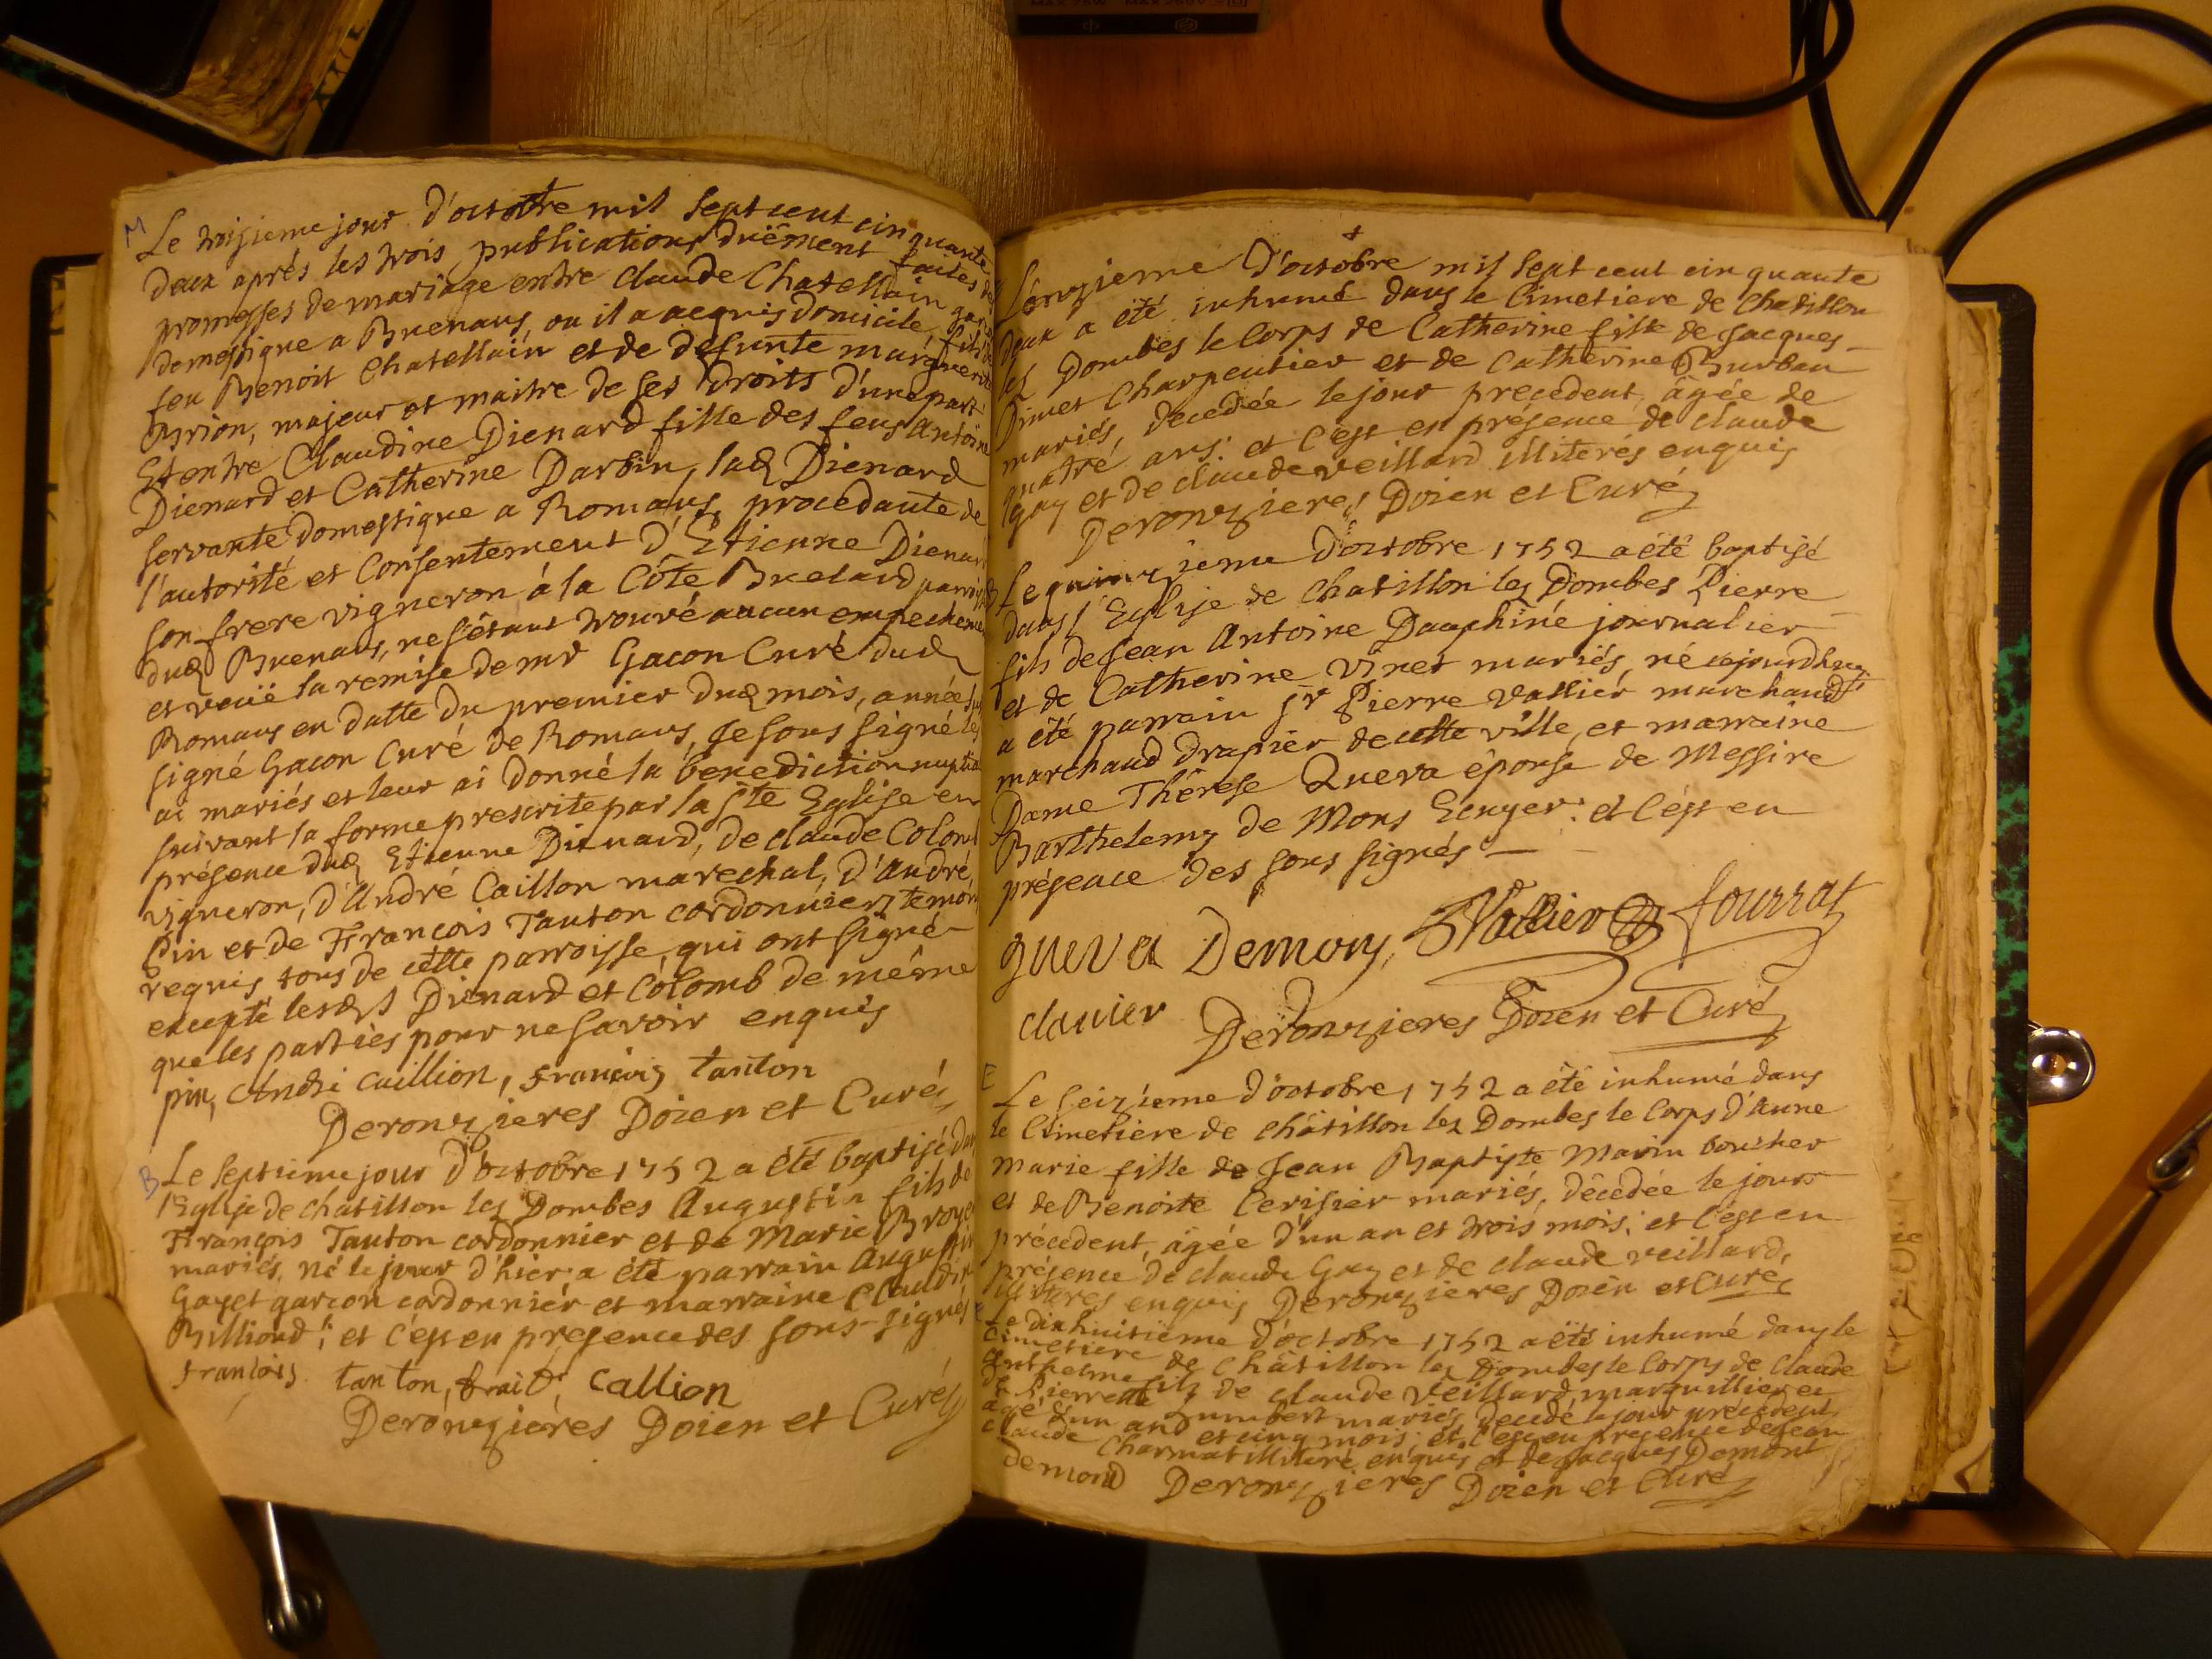 M
Le troisieme jour d'octobre mil sept cent cinquante
deux aprés les trois publications duëment faites des
promesses de mariage entre claude Chatellain
domestique a Buenans, ou il a acquis domicile, fils de
feu Benoit Chatellain et de defunte marguerite
Brion, majeur et maitre de ses droits d'une part
Et entre Claudine Dienard fille des feus Antoine
Dienard et Catherine Darbin, lad Dienard
servante domestique a Romans, procedante de
l'autorité et Consentement d'Etienne Dienard
son frere vigneron à la Côte Buelard
dud Buenans, ne s'étant trouvé aucun empecheme
et veüe la remise de mr Gacon Curé dud
Romans en datte du premier dud mois, année
signé Gacon Curé de Romans, je sous signé les
ai mariés et leur ai donné la benediction nuptia
suivant la forme prescrite par la ste Eglise en
présence dud Etienne Dienard, de claude Colomb
vigneron, d'André Caillon marechal, d'André
Pin et de François Tanton cordonnier temoin
requis tous de cette parroisse, qui ont signé
excepté lesds Dienard et Colomb de même
que les parties pour ne savoir enquis
pin, Andre caillion, francois tanton
Deronzieres Doien et Curé
B
Le septieme jour d'octobre 1752 a été baptisé dan
l'Eglise de chatillon les Dombes Augustin fils de
François Tanton cordonnier et de Marie Broye
mariés, né le jour d'hier; a été parrain Augustin
Gayet garçon cordonniér et marraine Claudin
Billioud; et c'est en presence des sous-signés
francois tanton, callion
Deronzieres Doien et Curé
L'onzieme d'octobre mil sept cent cinquante
deux a été inhumé dans le Cimetiere de Chatillon
les Dombes le Corps de Catherine fille de Jacques
Pinet Charpentier et de Catherine Burban
mariés, decedée le jour precedent, âgée de
quatre ans: et c'est en présence de claude
Gay et de claude veillard illiterés enquis
Deronzieres Doien et Curé
Le quinzieme d'octobre 1752 a été baptisé
dans l'Eglise de Chatillon les Dombes Pierre
fils de Jean Antoine Dauphiné journalier
et de Catherine Vinet mariés, né aujourdhuy
a été parrain sr Pierre Vallier marchand
marchand drapier de cette ville, et marraine
Dame Thérese Queva épouse de Messire
Barthelemy de Mons Ecuyer: et c'est en
présence des sous signés
queva Demons, Vallier fourrat
clavier Deronzieres Doien et Curé
E
Le seizieme d'octobre 1752 a été inhumé dans
le Cimetiere de châtillon les Dombes le Corps d'anne
marie fille de Jean Baptiste Marin boucher
et de Benoite Cerisier mariés, décedée le jour
précedent, âgée d'un an et trois mois: et c'est en
présence de claude Gay et de claude veillard,
illiterés enquis Deronzieres Doien et Curé
Le dixhuitieme d'octobre 1752 a été inhumé dans le
Cimetiere de Châtillon les Dombes le Corps de claude
Anthelme fils de claude veillard marguillier et
de Pierrette humbert mariés, decedé le jour precedent
agé d'un an et cinq mois: et c'est en presence de Jean
claude Charmat illiteré enquis et de Jacques Demont
demond Deronzieres Doien et Curé